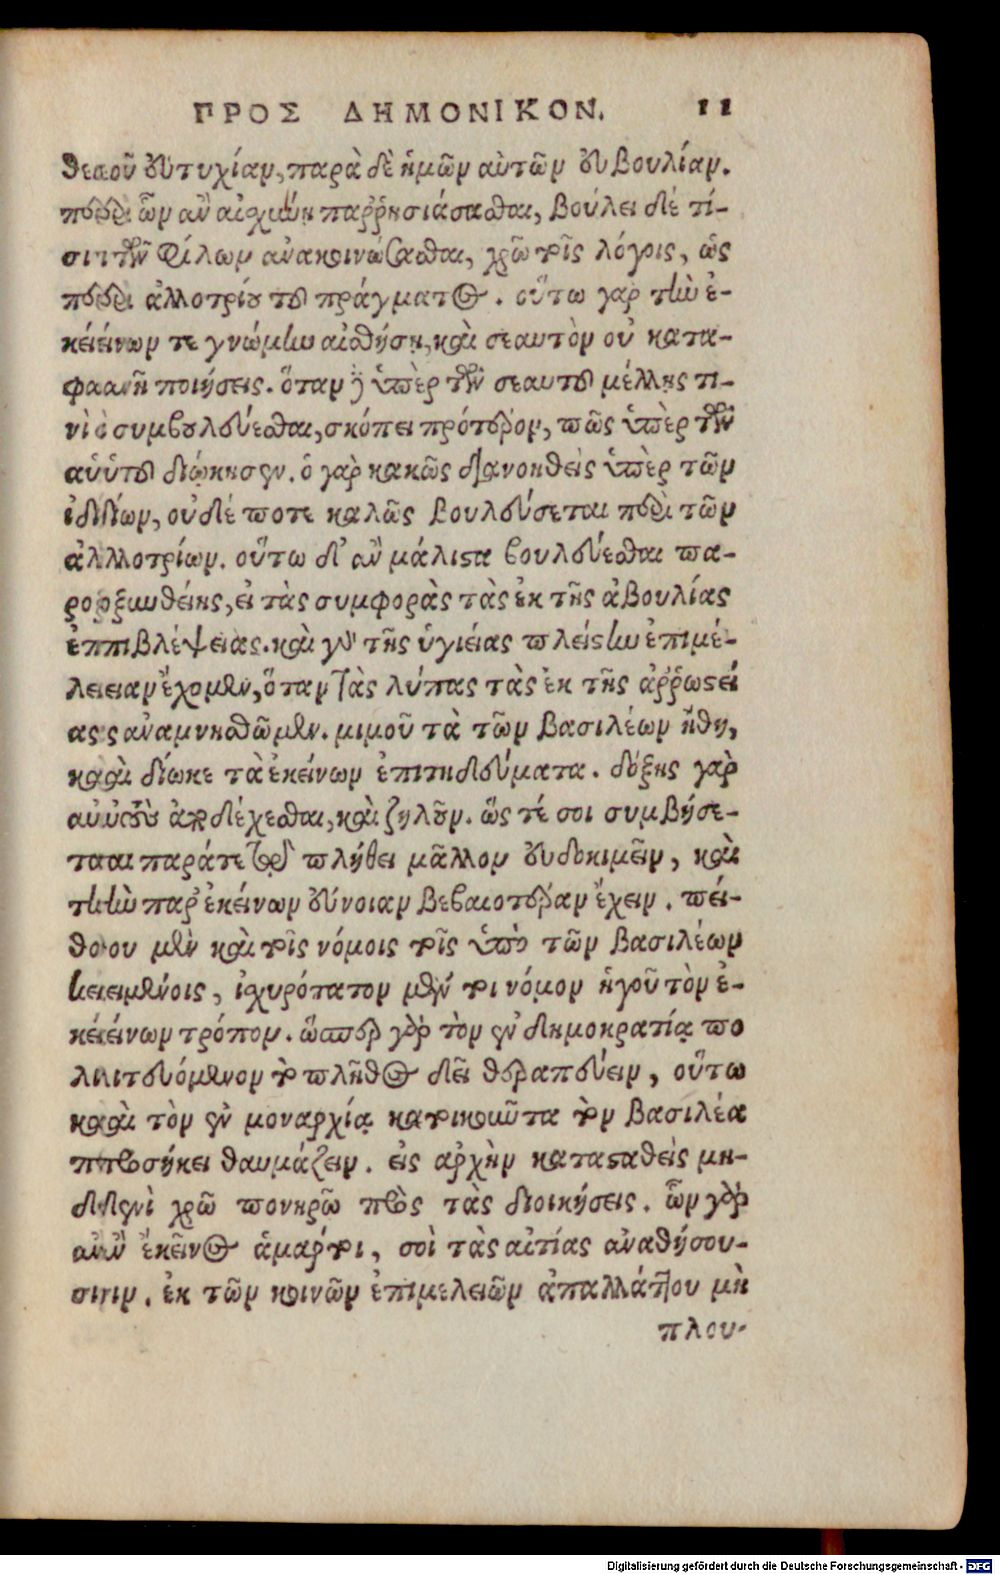 ΠΡΟΣ ΔΗΜΟΝΙΚΟΝ. 11
θεοῦ εὐτυχίαν, παρὰ δὲ ἡμῶν αὐτῶν εὐβουλίαν.
περὶ ὧν ἂν αἰσχύνῃ παῤῥησιάσασθαι, βούλει δέ τί-
σι τῶν φίλων ἀνακοινώσασθαι, χρῶ τοῖς λόγοις, ὡς
περὶ ἀλλοτρίου τοῦ πράγματος. οὕτω γαρ τὴν ἐ-
κείνων τε γνώμην αἰσθήσῃ, καὶ σεαυτὸν οὐ κατα-
φανῆ ποιήσεις. ὅταν δὲ ὑπὲρ τῶν σεαυτοῦ μέλλῃς τι-
νὶ συμβουλεύεσθαι, σκόπει πρότερον, πῶς ὑπὲρ τῶν
αὑτοῦ διῴκησεν. ὁ γὰρ κακῶς διανοηθεὶς ὑπὲρ τῶν
ἰδίων, οὐδέ ποτε καλῶς βουλεύσεται περὶ τῶν
ἀλλοτρίων. οὕτω δ' ἂν μάλιστα βουλεύεσθαι πα-
ροξυνθείης, εἰ τὰς συμφορὰς τὰς ἐκ τῆς ἀβουλίας
ἐπιβλέψειας. καὶ γὰρ τῆς ὑγιείας πλείστην ἐπιμέ-
λειαν ἔχομεν, ὅταν τὰς λύπας τὰς ἐκ τῆς ἀῤῥωστεί
ας ἀναμνησθῶμεν. μιμοῦ τὰ τῶν βασιλέων ἤθη,
καὶ δίωκε τὰ ἐκείνων ἐπιτηδεύματα. δόξῃς γὰρ
αὐτοὺς ἀποδέχεσθαι, καὶ ζηλοῦν. ὥς τέ σοι συμβήσε-
ται παράτε τῷ πλήθει μᾶλλον εὐδοκιμεῖν, καὶ
τὴν παρ' ἐκείνων εὔνοιαν βεβαιοτέραν ἔχειν. πεί-
θου μὲν καὶ τοῖς νόμοις τοῖς ὑπὸ τῶν βασιλέων
κειμένοις, ἰσχυρότατον μέν τοι νόμον ἡγοῦ τὸν ἐ-
κείνων τρόπον. ὥσπερ γὰρ τὸν ἐν δημοκρατίᾳ πο
λιτευόμενον τὸ πλῆθος δεῖ θεραπεύειν, οὕτω
καὶ τὸν ἐν μοναρχίᾳ κατοικοῦντα τὸν βασιλέα
προσήκει θαυμάζειν. εἰς ἀρχὴν κατασταθεὶς μη-
δενὶ χρῶ πονηρῷ πρὸς τὰς διοικήσεις. ὧν γὰρ
ἂν ἐκεῖνος ἁμάρτοι, σοὶ τὰς αἰτίας ἀναθήσου-
σιν. ἐκ τῶν κοινῶν ἐπιμελειῶν ἀπαλλάττου μὴ
πλου-
Digitalisierung gefördert durch die Deutsche Forschungsgemeinschaft - DFG